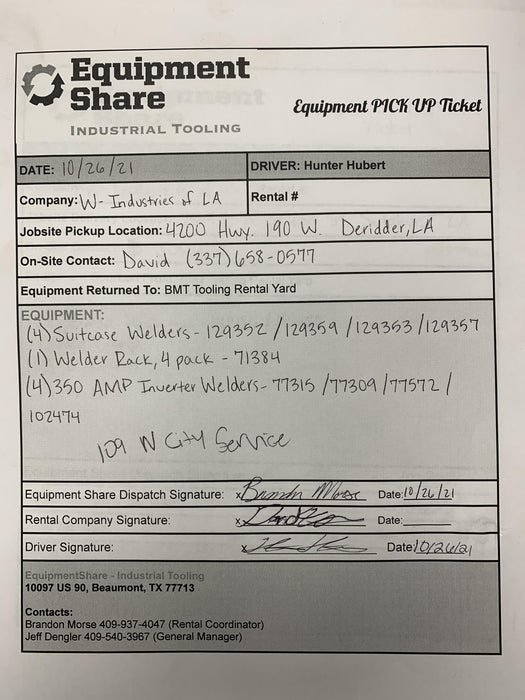 Equipment
Share
INDUSTRIAL TOOLING
Equipment PICK UP Ticket
DATE: 10/26/21
DRIVER: Hunter Hubert
Company: W- Industries of LA
Rental #
Jobsite Pickup Location: 4200 Hwy. 190 W. Deridder, LA
On-Site Contact: David (337) 658-0577
Equipment Returned To: BMT Tooling Rental Yard
EQUIPMENT:
(4) Suitcase Welders - 129352 / 129359 / 129353 / 129357
(1) Welder Rack, 4 pack - 71384
(4) 350 AMP Inverter Welders - 77315 / 77309 / 77572 /
102474
109 N City Service
Equipment Share Dispatch Signature: x Brandon Morse Date: 10/26/21
Rental Company Signature: x Date:
Driver Signature: x Date: 10/26/21
EquipmentShare - Industrial Tooling
10097 US 90, Beaumont, TX 77713
Contacts:
Brandon Morse 409-937-4047 (Rental Coordinator)
Jeff Dengler 409-540-3967 (General Manager)